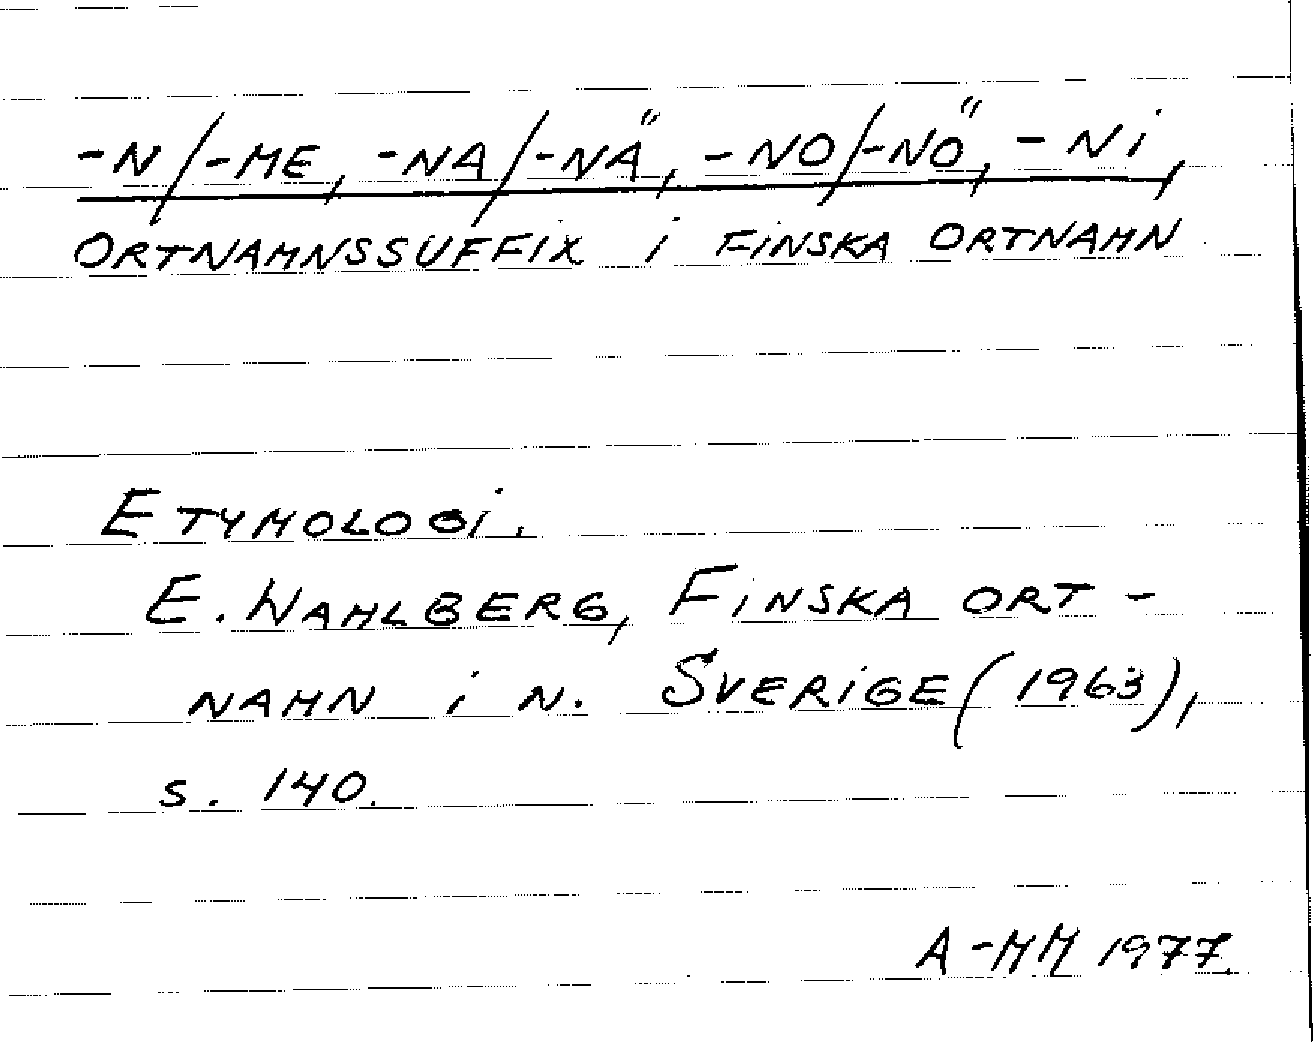 -N/-ME, -NA/-NÄ, -NO/-NÖ, -Ni,
ORTNAMNSSUFFIX i FiNSKA ORTNAMN
ETYMOLOGi.
E. WAHLBERG, FiNSKA ORT-
NAMN i N. SVERiGE (1963),
S. 140.
A-MM 1977.